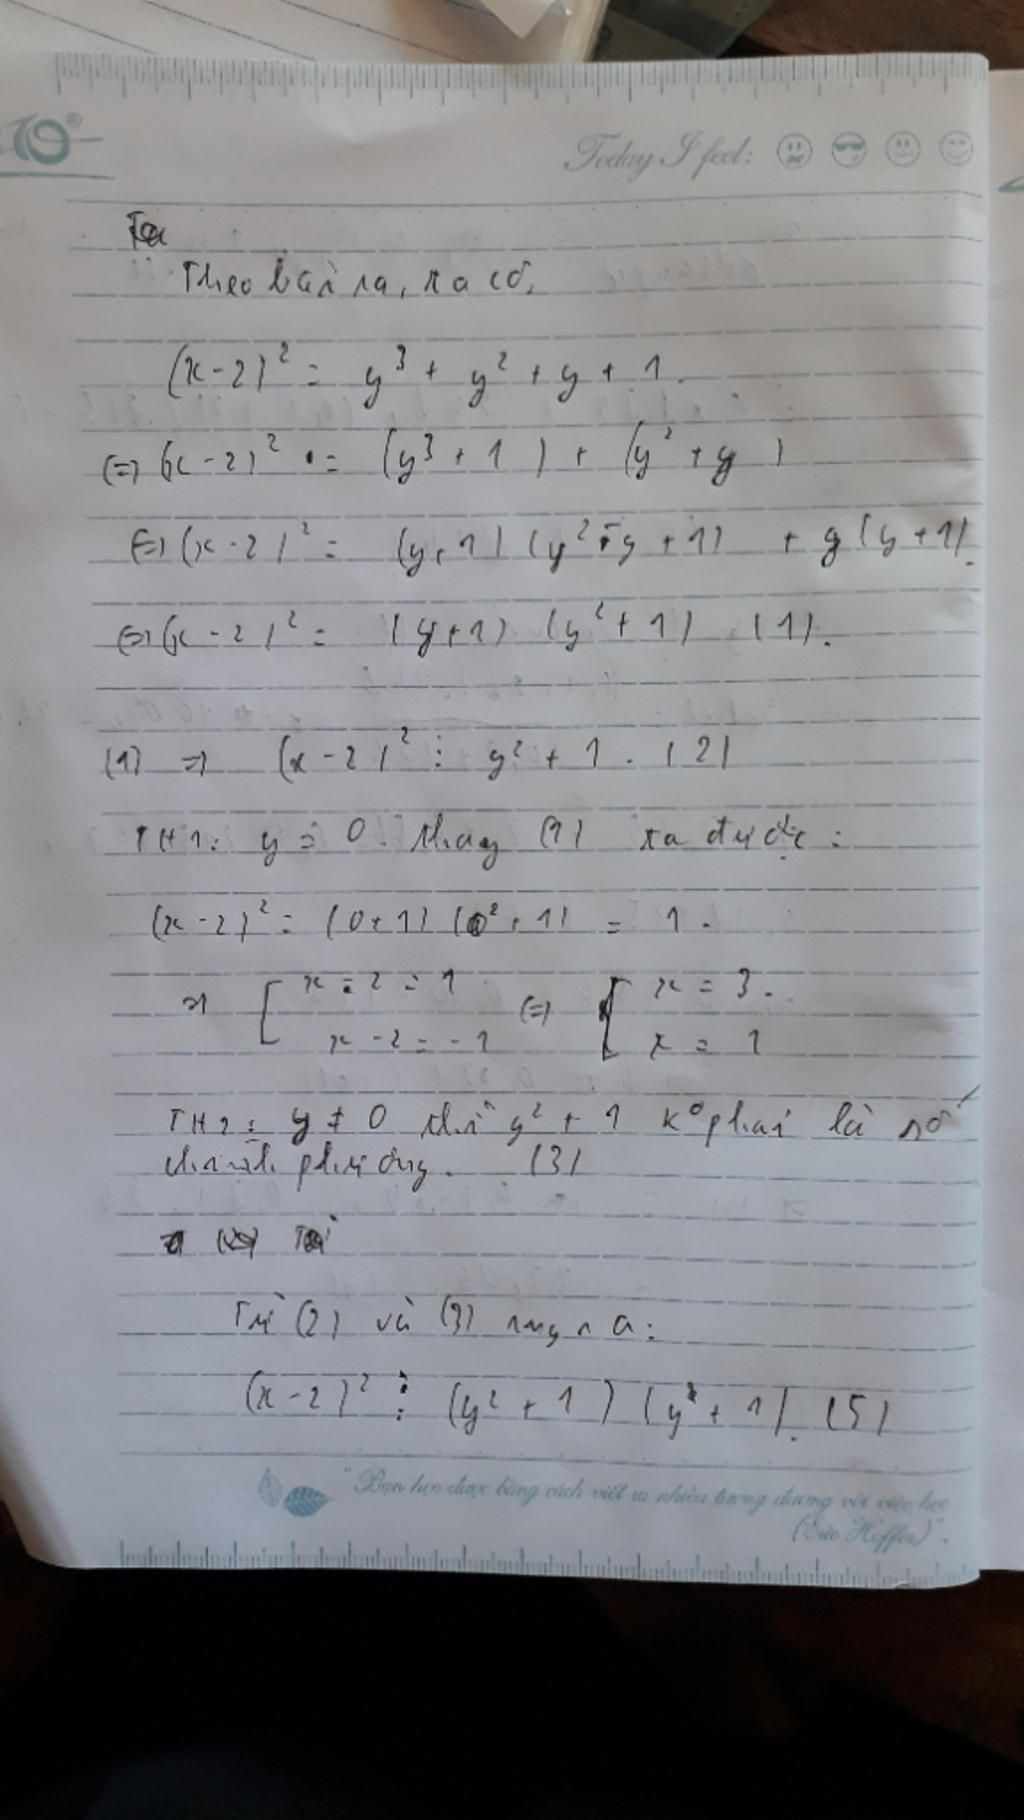 TO®
Today I feel:
Theo bài ra, ta có,
(x-2)² = y³ + y² + y + 1.
(=) (x-2)² = (y³ + 1) + (y² + y)
(=) (x-2)² = (y+1) (y² - y + 1) + y(y+1).
(=) (x-2)² = (y+1) (y² + 1) (1).
(1) => (x-2)² ⋮ y² + 1. (2)
TH1: y = 0. thay (1) ta được:
(x-2)² = (0+1) (0²+1) = 1.
=> [ x-2 = 1 (=) [ x = 3.
x-2 = -1 x = 1
TH2: y ≠ 0 thì y² + 1 k° phải là số
chính phương. (3)
Từ (2) và (3) suy ra:
(x-2)² ⋮ (y² + 1) (y² + 1). (5)
"Bạn học được bằng cách viết ra nhiều tương đương với việc học
(Eric Hoffer)".